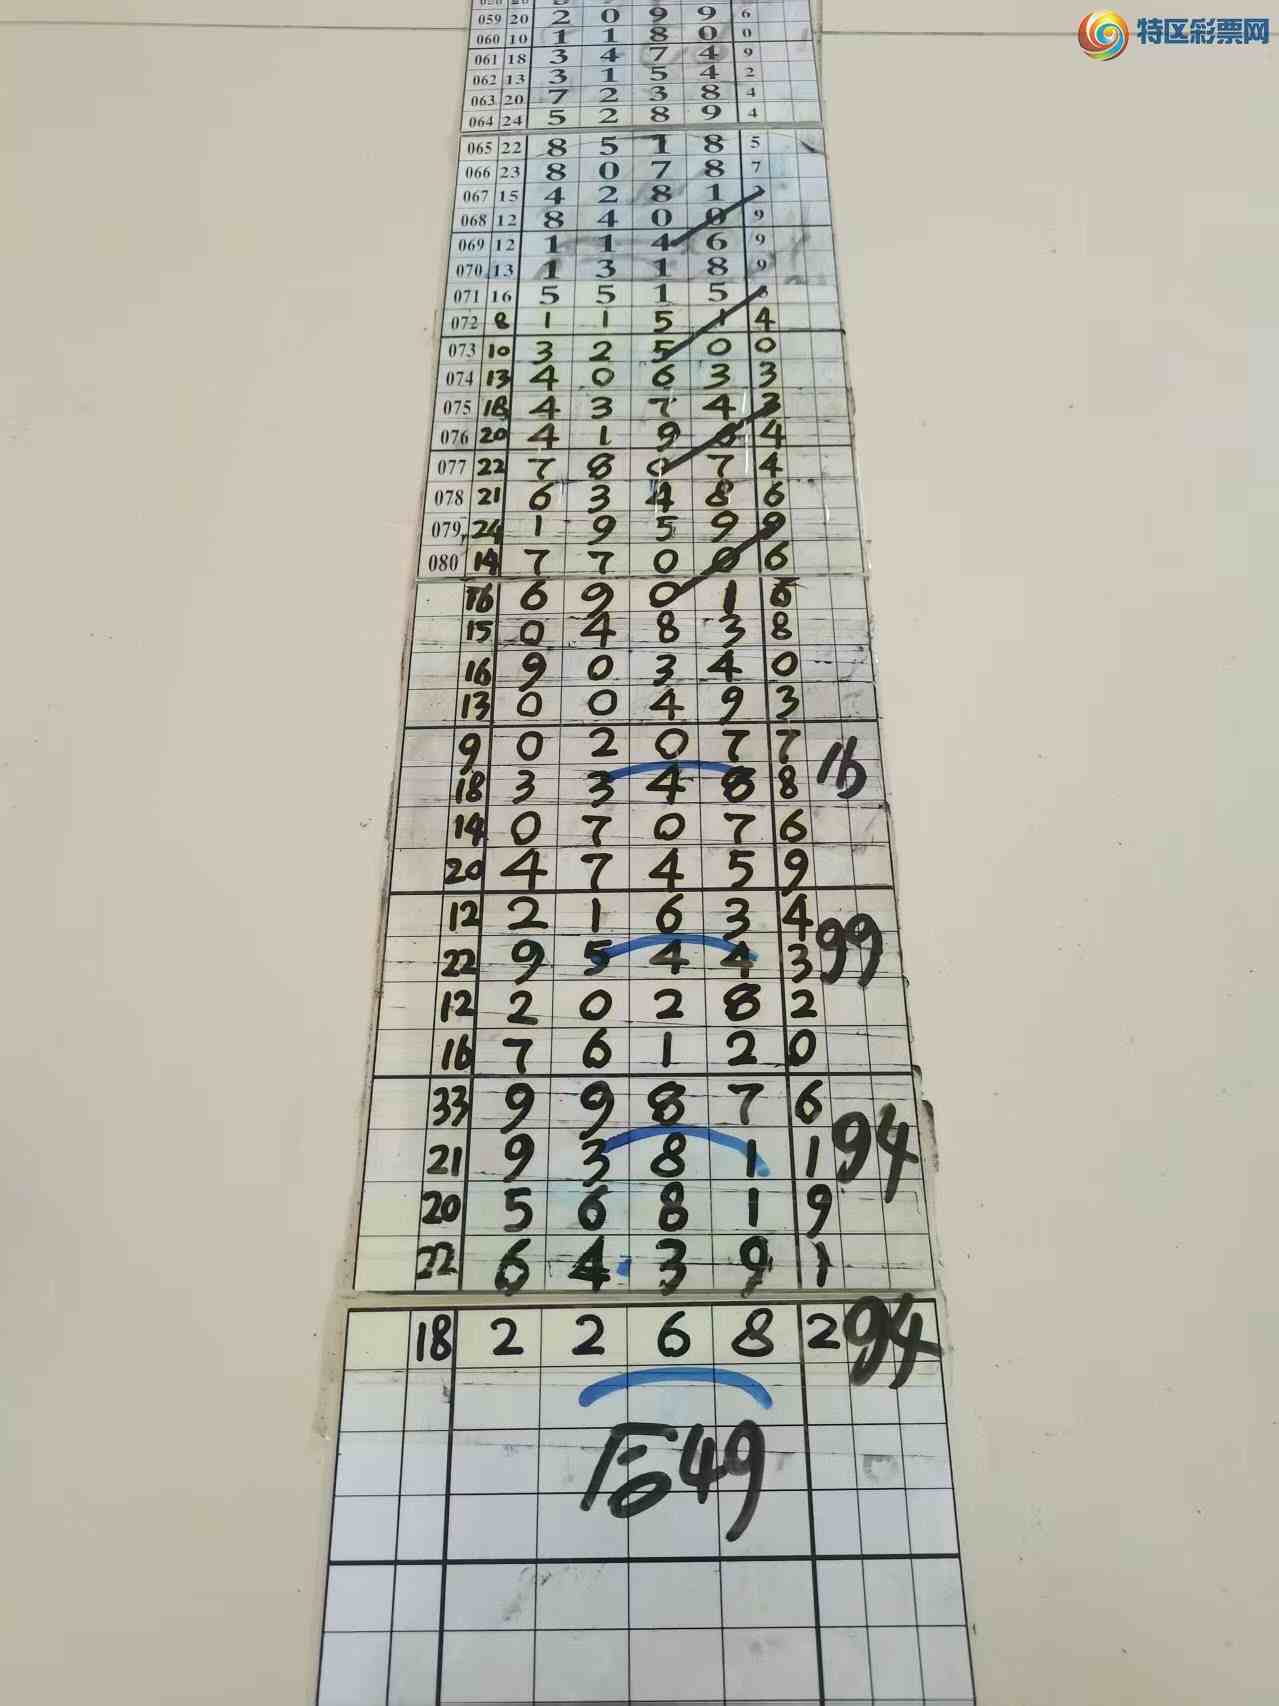 特区彩票网
059 20 2 0 9 9 6
060 10 1 1 8 0 0
061 18 3 4 7 4 9
062 13 3 1 5 4 2
063 20 7 2 3 8 4
064 24 5 2 8 9 4
065 22 8 5 1 8 5
066 23 8 0 7 8 7
067 15 4 2 8 1
068 12 8 4 0 0 9
069 12 1 1 4 6 9
070 13 1 3 1 8 9
071 16 5 5 1 5
072 8 1 1 5 1 4
073 10 3 2 5 0 0
074 13 4 0 6 3 3
075 18 4 3 7 4 3
076 20 4 1 9 6 4
077 22 7 8 0 7 4
078 21 6 3 4 8 6
079 24 1 9 5 9 9
080 14 7 7 0 0 6
16 6 9 0 1 6
15 0 4 8 3 8
16 9 0 3 4 0
13 0 0 4 9 3
9 0 2 0 7 7
16
18 3 3 4 8 8
14 0 7 0 7 6
20 4 7 4 5 9
12 2 1 6 3 4
99
22 9 5 4 4 3
12 2 0 2 8 2
16 7 6 1 2 0
33 9 9 8 7 6
94
21 9 3 8 1 1
20 5 6 8 1 9
22 6 4 3 9 1
18 2 2 6 8 2 94
后49